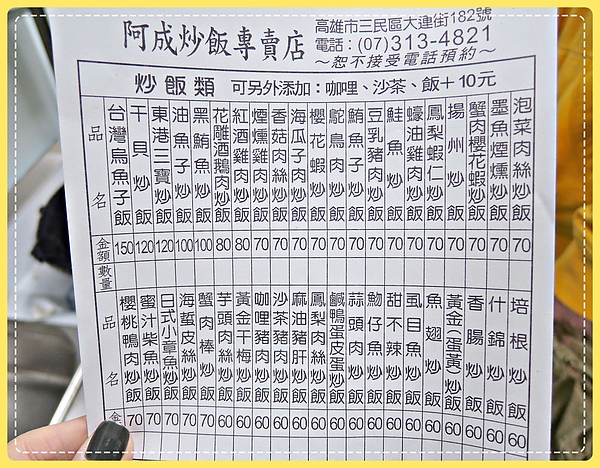 阿成炒飯專賣店
高雄市三民區大連街182號
電話：(07)313-4821
～恕不接受電話預約～
炒飯類 可另外添加：咖哩、沙茶、飯＋10元
品名 金額 數量
台灣烏魚子飯 150
干貝炒飯 120
東港三寶炒飯 120
油魚子炒飯 100
黑鮪魚炒飯 100
花雕酒鵝肉炒飯 80
紅酒雞肉炒飯 80
煙燻雞肉炒飯 70
香菇肉絲炒飯 70
海瓜子肉炒飯 70
櫻花蝦炒飯 70
鴕鳥肉炒飯 70
鮪魚子炒飯 70
豆乳豬肉炒飯 70
鮭魚炒飯 70
蠔油雞肉炒飯 70
鳳梨蝦仁炒飯 70
揚州炒飯 70
蟹肉櫻花蝦炒飯 70
墨魚煙燻炒飯 70
泡菜肉絲炒飯 70
品名 金
櫻桃鴨肉炒飯 70
蜜汁柴魚炒飯 70
日式小章魚炒飯 70
海蜇皮絲炒飯 70
蟹肉棒炒飯 70
芋頭肉絲炒飯 60
黃金干梅炒飯 60
咖哩豬肉炒飯 60
沙茶豬肉炒飯 60
麻油豬肝炒飯 60
鳳梨肉絲炒飯 60
鹹鴨蛋皮蛋炒飯 60
蒜頭肉炒飯 60
魩仔魚炒飯 60
甜不辣炒飯 60
虱目魚炒飯 60
魚翅炒飯 60
黃金(蛋黃)炒飯 60
香腸炒飯 60
什錦炒飯 60
培根炒飯 60